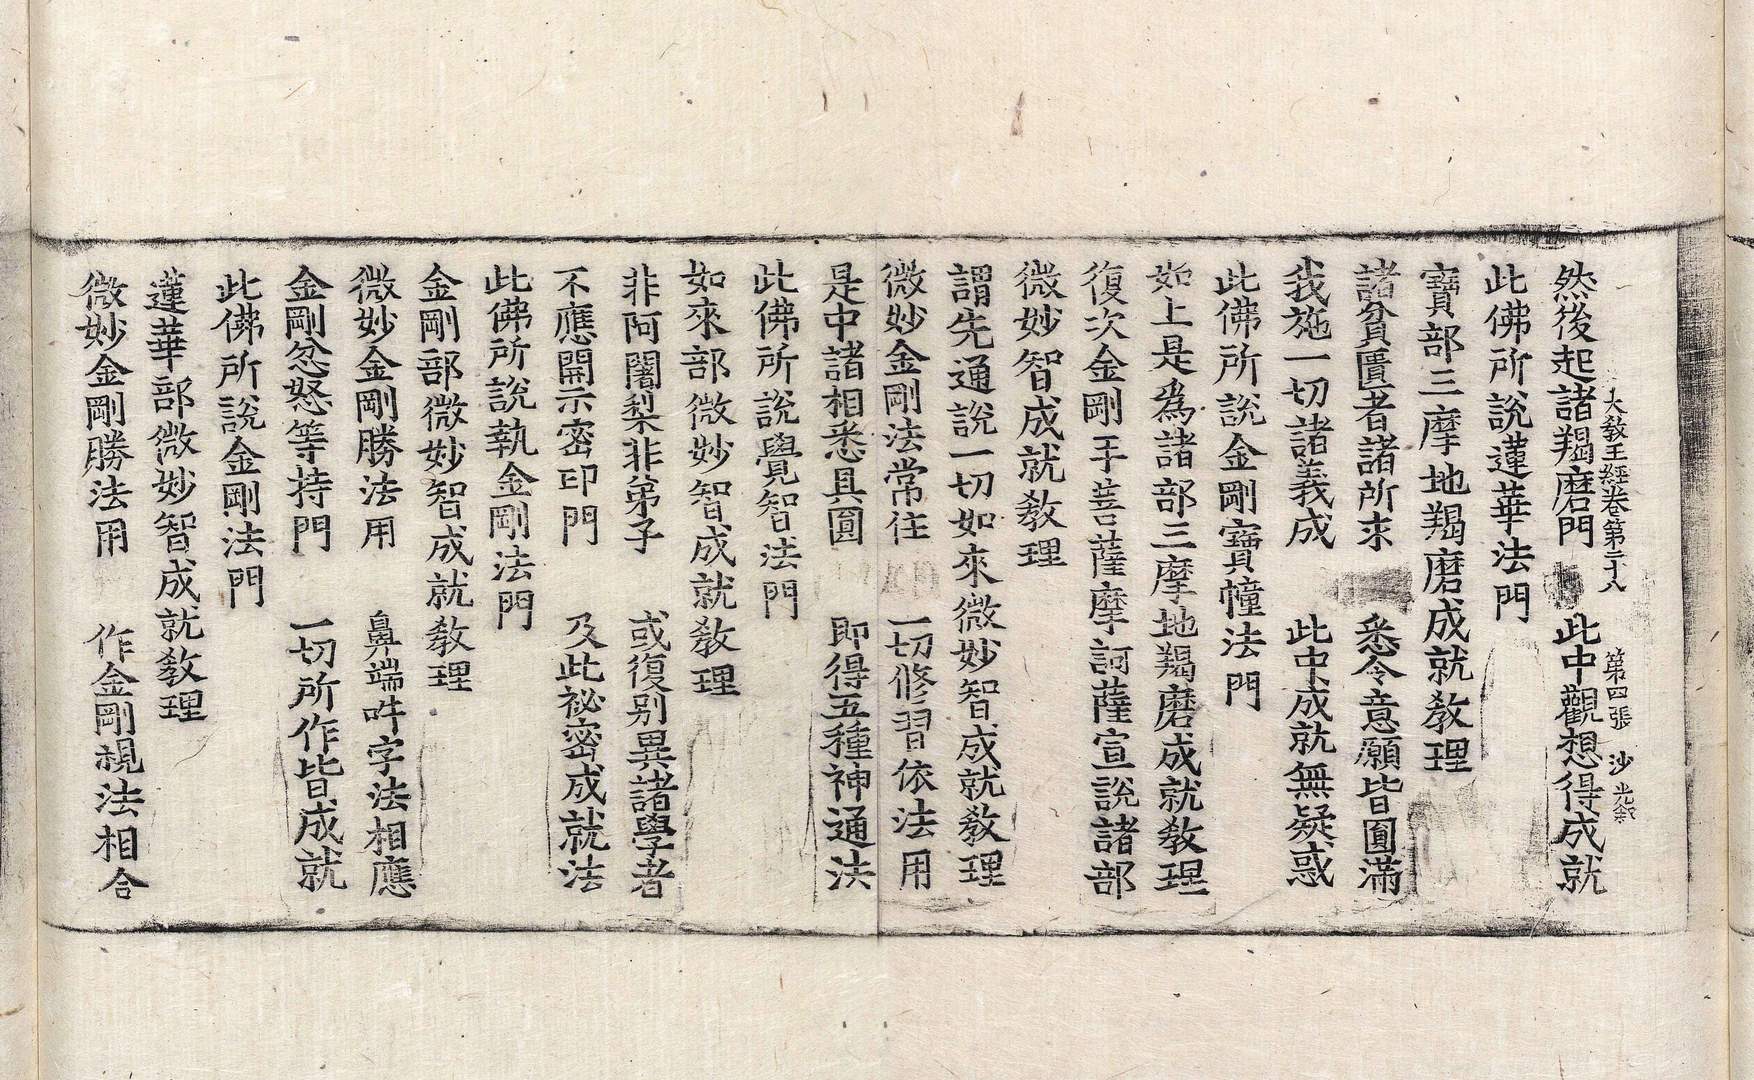 大教王經卷第二十八　第四張　沙
然後起諸羯磨門　此中觀想得成就
此佛所說蓮華法門
寶部三摩地羯磨成就教理
諸貧匱者諸所求　悉令意願皆圓滿
我施一切諸義成　此中成就無疑惑
此佛所說金剛寶幢法門
如上是為諸部三摩地羯磨成就教理
復次金剛手菩薩摩訶薩宣說諸部
微妙智成就教理
謂先通說一切如來微妙智成就教理
微妙金剛法常住　一切修習依法用
是中諸相悉具圓　即得五種神通法
此佛所說覺智法門
如來部微妙智成就教理
非阿闍梨非弟子　或復別異諸學者
不應開示密印門　及此祕密成就法
此佛所說執金剛法門
金剛部微妙智成就教理
微妙金剛勝法用　鼻端吽字法相應
金剛忿怒等持門　一切所作皆成就
此佛所說金剛法門
蓮華部微妙智成就教理
微妙金剛勝法用　作金剛視法相合